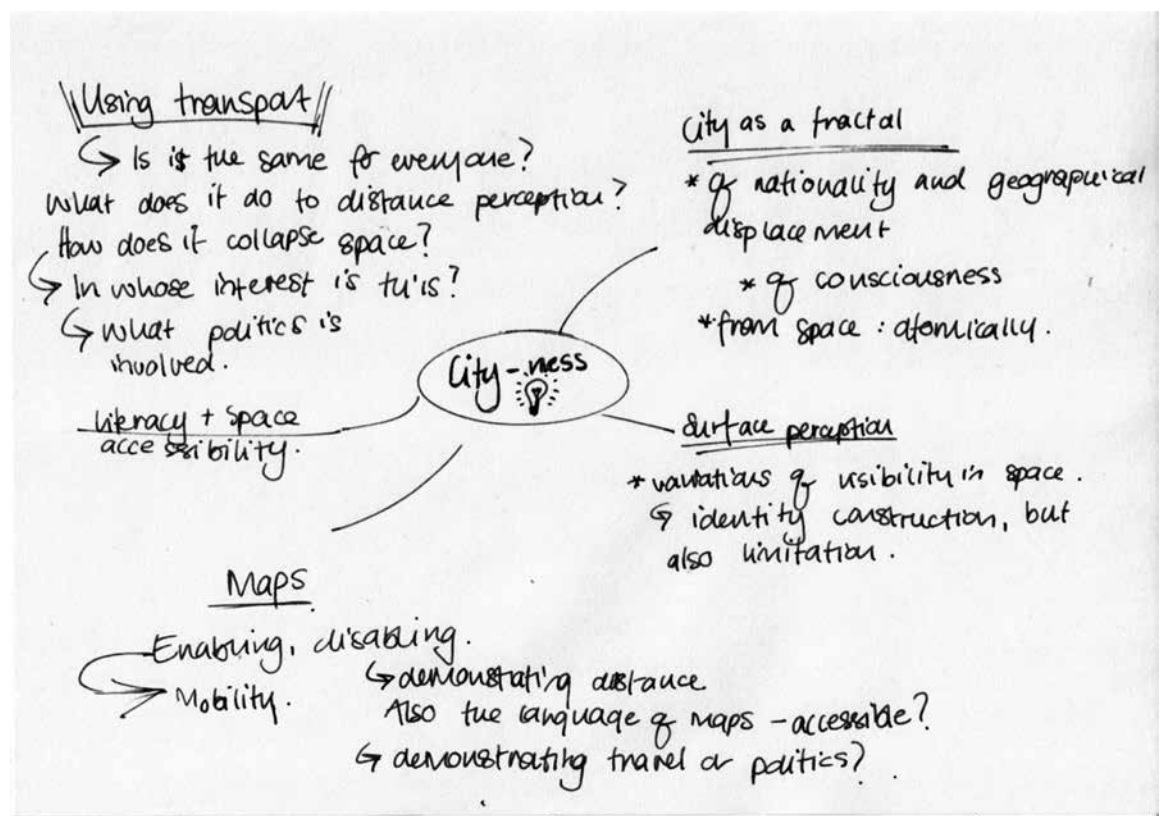 Using transport
↳ Is it the same for everyone?
What does it do to distance perception?
How does it collapse space?
↳ In whose interest is this?
↳ what politics is
involved.
Literacy + space
accessibility.
City-ness
City as a fractal
* of nationality and geographical
displacement
* of consciousness
* from space : atomically.
Surface perception
* variations of visibility in space.
↳ identity construction, but
also limitation.
Maps
Enabling, disabling.
Mobility.
↳ demonstrating distance
Also the language of maps - accessible?
↳ demonstrating travel or politics?